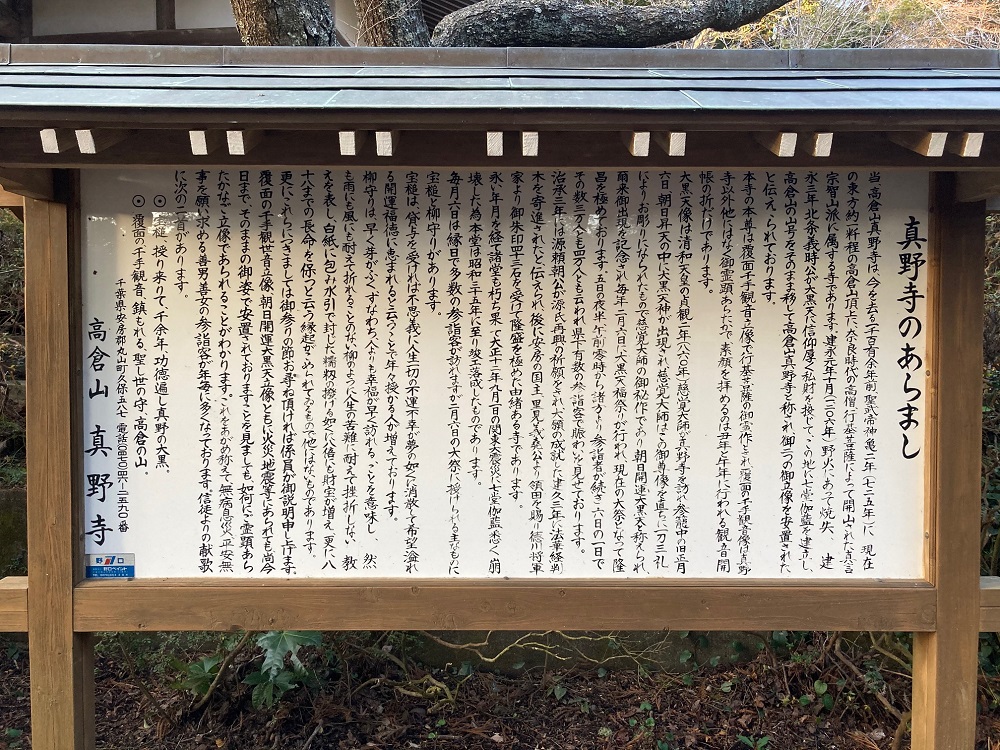 真野寺のあらまし
当高倉山真野寺は、今を去る一千二百有余年前聖武帝神亀二年(七二五年)に、現在
の東方約一粁程の高倉山頂上に奈良時代の高僧行基菩薩によって開山された真言
宗智山派に属する寺であります。建永元年十月(一二〇六年)野火にあって焼失、建
永三年北条義時公が大黒天に信仰厚く私財を投じてこの地に七堂伽藍を建立し、
高倉山の山号をそのまま移して高倉山真野寺と称され御二つの御立像を安置された
と伝えられております。
本寺の本尊は覆面千手観音立像で行基菩薩の御霊作とされ覆面の千手観音像は真野
寺以外他にはなく御霊顕あらたかで、素顔を拝めるのは丑年と午年に行われる観音開
帳の折だけであります。
大黒天像は清和天皇の貞観二年(八六〇年)慈覚大師が真野寺を訪れ参籠中の旧正月
六日、朝日昇天の中に大黒天神が出現され慈覚大師はこの御尊像を直ちに一刀三礼
によりお彫りになられたもので慈覚大師の御秘作であり、朝日開運大黒天と称えられ
爾来御出現を記念され毎年二月六日に大黒天福祭りが行われ、現在の大祭となって隆
昌を極めております。五日の夜半午前零時から諸方より参詣者が続き六日の一日で
その数三万人とも四万人とも云われ県下有数の参詣客で賑わいを見せております。
治承三年には源頼朝公が源氏再興の祈願をされ大願の成就した建久三年には法華経
木を寄進されたと伝えられ、後に安房の国主、里見義秦公より領田を賜り徳川将軍
家より御朱印四十三石を受けて隆盛を極めた由緒ある寺であります。
永い年月を経て諸堂も朽ち果て大正十二年九月一日の関東大震災に七堂伽藍悉く崩
壊した為本堂は昭和三十五年に至り竣工落成したものであります。
毎月六日は縁日で多数の参詣客が訪れますが二月六日の大祭に授けられる主なものに
宝槌と柳守りがあります。
宝槌は、貸与を受ければ不思議に人生一切の不運不幸が夢の如くに消散して希望溢れ
る開運福徳に恵まれると云うことで年々授かる人が増えております。
柳守りは、早く芽がふく、すなわち人よりも幸福が早く訪れることを意味し　然
も雨にも風にも耐えて折れることのない柳のように人生の苦難に耐えて挫折しない教
えを表し、白紙に包み水引で封じた糯籾の撥ける如くに倍にも財宝が増え、更に八
十八までの長命を保つと云う縁起がこめられてゐるもので他にはないものであります。
更にこれらにつきましては御参りの節お尋ね頂ければ係員が御説明申し上げます。
覆面の千手観世音立像、朝日開運大黒天立像ともに火災、地震等にあわれても尚今
日まで、そのままの御姿で安置されておりますことを見ましても、如何に御霊顕あら
たかなご立像であられることがわかります。これをあがめ称えて無病息災、平安、無
事を願い求める善男善女の参詣客が年毎に多くなっております。信徒よりの献歌
に次の二首があります。
⊙宝槌　授り来りて、千余年、功徳遍し真野の大黒、
⊙覆面の千手観音鎮まれる、聖し世の守、高倉の山、
千葉県安房郡丸山町久保五八七　電話〇四七〇(四六)二五九〇番
高倉山　真野寺
野口